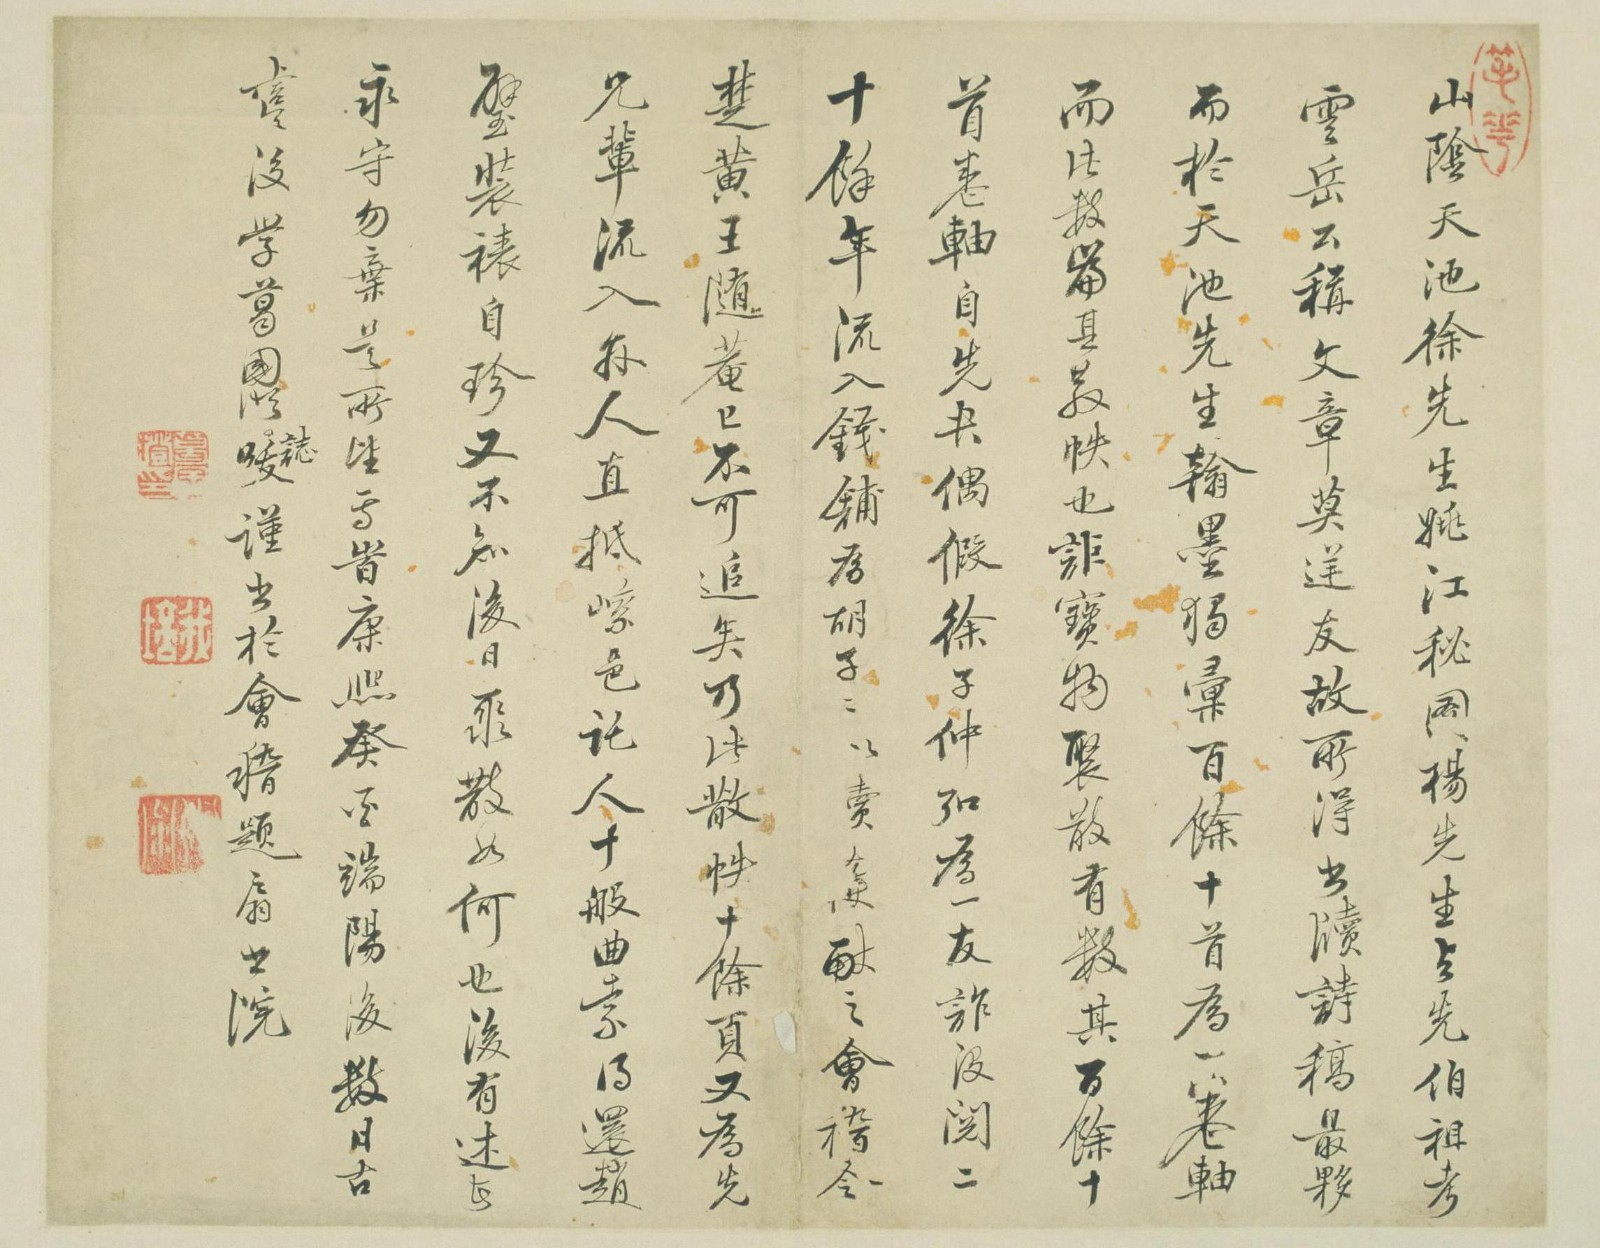 山陰天池徐先生姚江秘圖楊先生與先伯祖考
雲岳公稱文章莫逆友故所得書牘詩稿最夥
而於天池先生翰墨獨彙百餘十首為一卷軸
而此數篇其散帙也詎寶物聚散有數其百餘十
首卷軸自先考偶假徐子仲弘為一友詐沒閱二
十餘年流入錢舖為胡子二以賣錢酬之會稽令
楚黃王隨菴已不可追矣乃此散帙十餘頁又為先
兄輩流入歙人直抵嵊邑託人十般曲索得還趙
璧裝裱自珍又不知後日聚散如何也後有述者
永守勿棄是所望焉旹康熙癸酉端陽後數日古
虞後學葛國 謹書於會稽題扇書院
誌